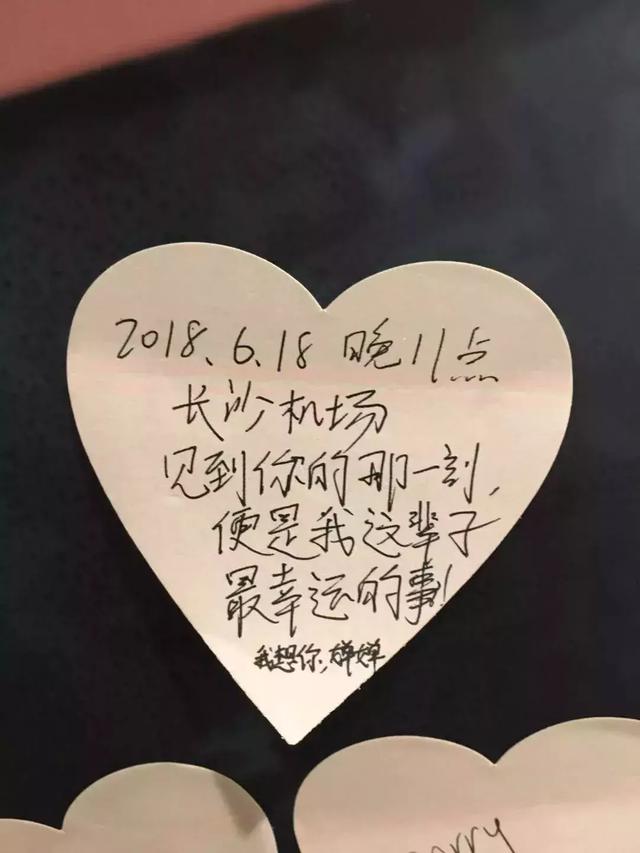 2018.6.18 晚11点
长沙机场
见到你的那一刻,
便是我这辈子
最幸运的事!
我想你,婵婵